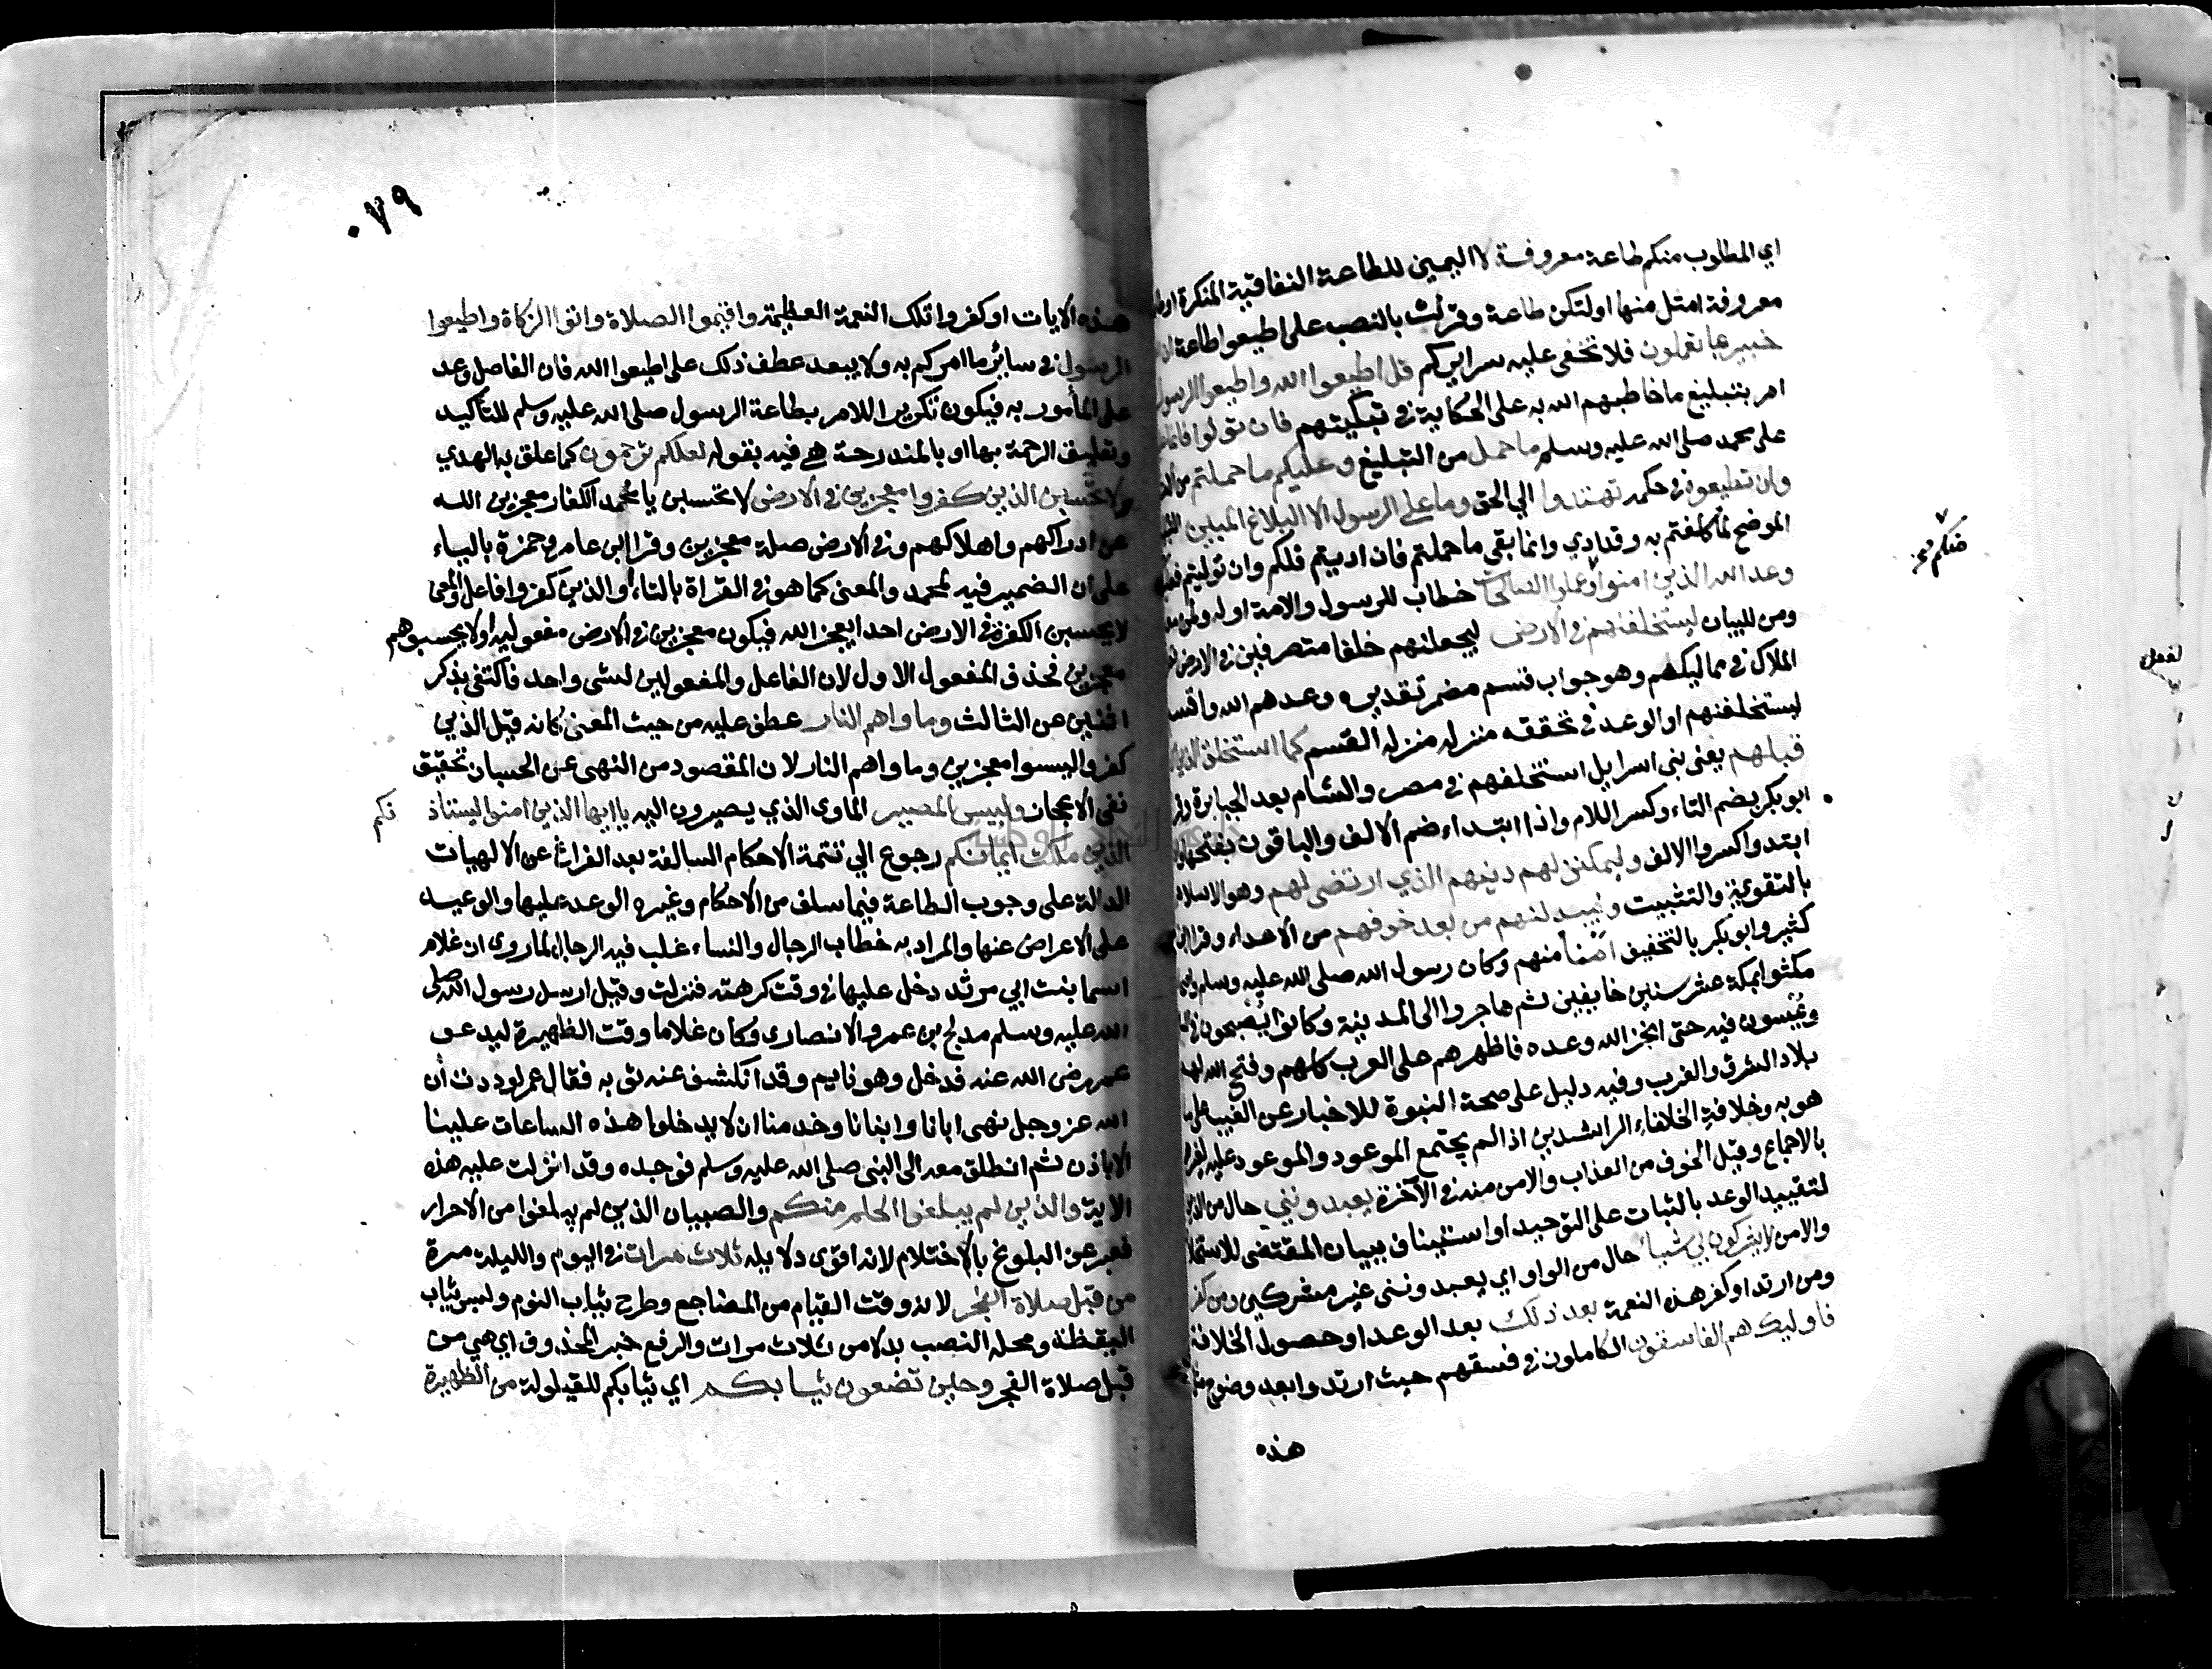 اي المطلوب منكم طاعة معروفة لا اليمين للطاعة النفاقية المنكرة
معروفة امثل منها اولتكن طاعة وقرئت بالنصب على اطيعوا طاعة
خبير بما تعملون فلا تخفى عليه سرايركم قل اطيعوا الله واطيعوا الرسول
امر بتبليغ ما خاطبهم الله به على الحكاية في تبكيتهم فان تولوا فانما
على محمد صلى الله عليه وسلم ما حمل من التبليغ وعليكم ما حملتم من
وان تطيعوه في حكمه تهتدوا الي الحق وما على الرسول الا البلاغ المبين
الموضح لما كلفتم به وقد ادي وانما بقي ما حملتم فان اديتم فلكم وان توليتم
وعد الله الذين امنوا وعملوا الصالحات خطاب للرسول والامة اوله ولمن
منكم
ومن للبيان ليستخلفنهم في الارض ليجعلنهم خلفا متصرفين في الارض
الملاك في مماليكهم وهو جواب قسم مضمر تقديره وعدهم الله واقسم
ليستخلفنهم او الوعد في تحققه منزله منزلة القسم كما استخلف الذين
قبلهم يعنى بنى اسرايل استخلفهم في مصر والشام بعد الجبابرة
ابو بكر بضم التاء وكسر اللام واذا ابتداء ضم الالف والباقون بفتحها
ابتدوا كسروا الالف وليمكنن لهم دينهم الذي ارتضى لهم وهو الاسلام
بالتقوية والتثبيت وليبدلنهم من بعد خوفهم من الاعداء وقرا ابن
كثير وابو بكر بالتخفيف امنا منهم وكان رسول الله صلى الله عليه وسلم
مكثوا بمكة عشر سنين خايفين ثم هاجروا الى المدينة وكانوا يصبحون في
ويمسون فيه حتى انجز الله وعده فاظهرهم على العرب كلهم وفتح الله لهم
بلاد الشرق والغرب وفيه دليل على صحة النبوة للاخبار عن الغيب على ما
هو به وخلافة الخلفاء الراشدين اذ لم يجتمع الموعود والموعود عليه
بالاجماع وقيل الخوف من العذاب والامن منه في الاخرة يعبدونني حال من الذين
لتقييد الوعد بالثبات على التوحيد او استئناف ببيان المقتضي للاستخلاف
والامن لا يشركون بي شيئا حال من الواو اي يعبدونني غير مشركين ومن كفر
ومن ارتد او كفر هذه النعمة بعد ذلك بعد الوعد او حصول الخلافة
فاوليك هم الفاسقون الكاملون في فسقهم حيث ارتدوا بعد وضوح
هذه
٠٧٩
هذه الايات او كفروا تلك النعمة العظيمة واقيموا الصلاة واتوا الزكاة واطيعوا
الرسول في سائر ما امركم به ولا يبعد عطف ذلك على اطيعوا الله فان الفاصل وعد
على المأمور به فيكون تكرير اللامر بطاعة الرسول صلى الله عليه وسلم للتأكيد
وتعليق الرحمة بها او بالمندرجة هي فيه بقوله لعلكم ترحمون كما علق به الهدي
ولا تحسبن الذين كفروا معجزين في الارض لا تحسبن يا محمد الكفار معجزين الله
عن ادراكهم واهلاكهم وفي الارض صلة معجزين وقرا ابن عامر وحمزة بالياء
على ان الضمير فيه لمحمد والمعنى كما هو في القراة بالتاء او الذين كفروا فاعل والمعنى
لا يحسبن الكفرة في الارض احدا يعجز الله فيكون معجزين في الارض مفعوليه او لا يحسبوهم
معجزين فحذف المفعول الاول لان الفاعل والمفعولين لشى واحد فاكتفى بذكر
اثنين عن الثالث وماواهم النار عطف عليه من حيث المعنى كانه قيل الذين
كفروا ليسوا معجزين وماواهم النار لان المقصود من النهى عن الحسبان تحقيق
نفى الاعجاز ولبيس المصير الماوى الذي يصيرون اليه يا ايها الذين امنوا ليستاذ نكم
الذين ملكت ايمانكم رجوع الي تتمة الاحكام السالفة بعد الفراغ عن الالهيات
الدالة على وجوب الطاعة فيما سلف من الاحكام وغيره الوعد عليها والوعيد
على الاعراض عنها والمراد به خطاب الرجال والنساء غلب فيه الرجال لما روى ان غلام
اسما بنت ابي مرثد دخل عليها في وقت كرهته فنزلت وقيل ارسل رسول الله صلى
الله عليه وسلم مدلج بن عمرو الانصارى وكان غلاما وقت الظهيرة ليدعو
عمر رضى الله عنه فدخل وهو نايم وقد انكشف عنه ثوبه فقال عمر لوددت أن
الله عز وجل نهى ابانا وابنانا وخدمنا ان لا يدخلوا هذه الساعات علينا
الا باذن ثم انطلق معه الى النبى صلى الله عليه وسلم فوجده وقد انزلت عليه هذه
الاية والذين لم يبلغوا الحلم منكم والصبيان الذين لم يبلغوا من الاحرار
فعبر عن البلوغ بالاختلام لانه اقوى دلايله ثلاث مرات في اليوم والليلة مرة
من قبل صلاة الفجر لانه وقت القيام من المضاجع وطرح ثياب النوم ولبس ثياب
اليقظة ومحله النصب بدلا من ثلاث مرات والرفع خبر المحذوف اي هي من
قبل صلاة الفجر وحين تضعون ثيابكم اي ثيابكم للقيلولة من الظهيرة